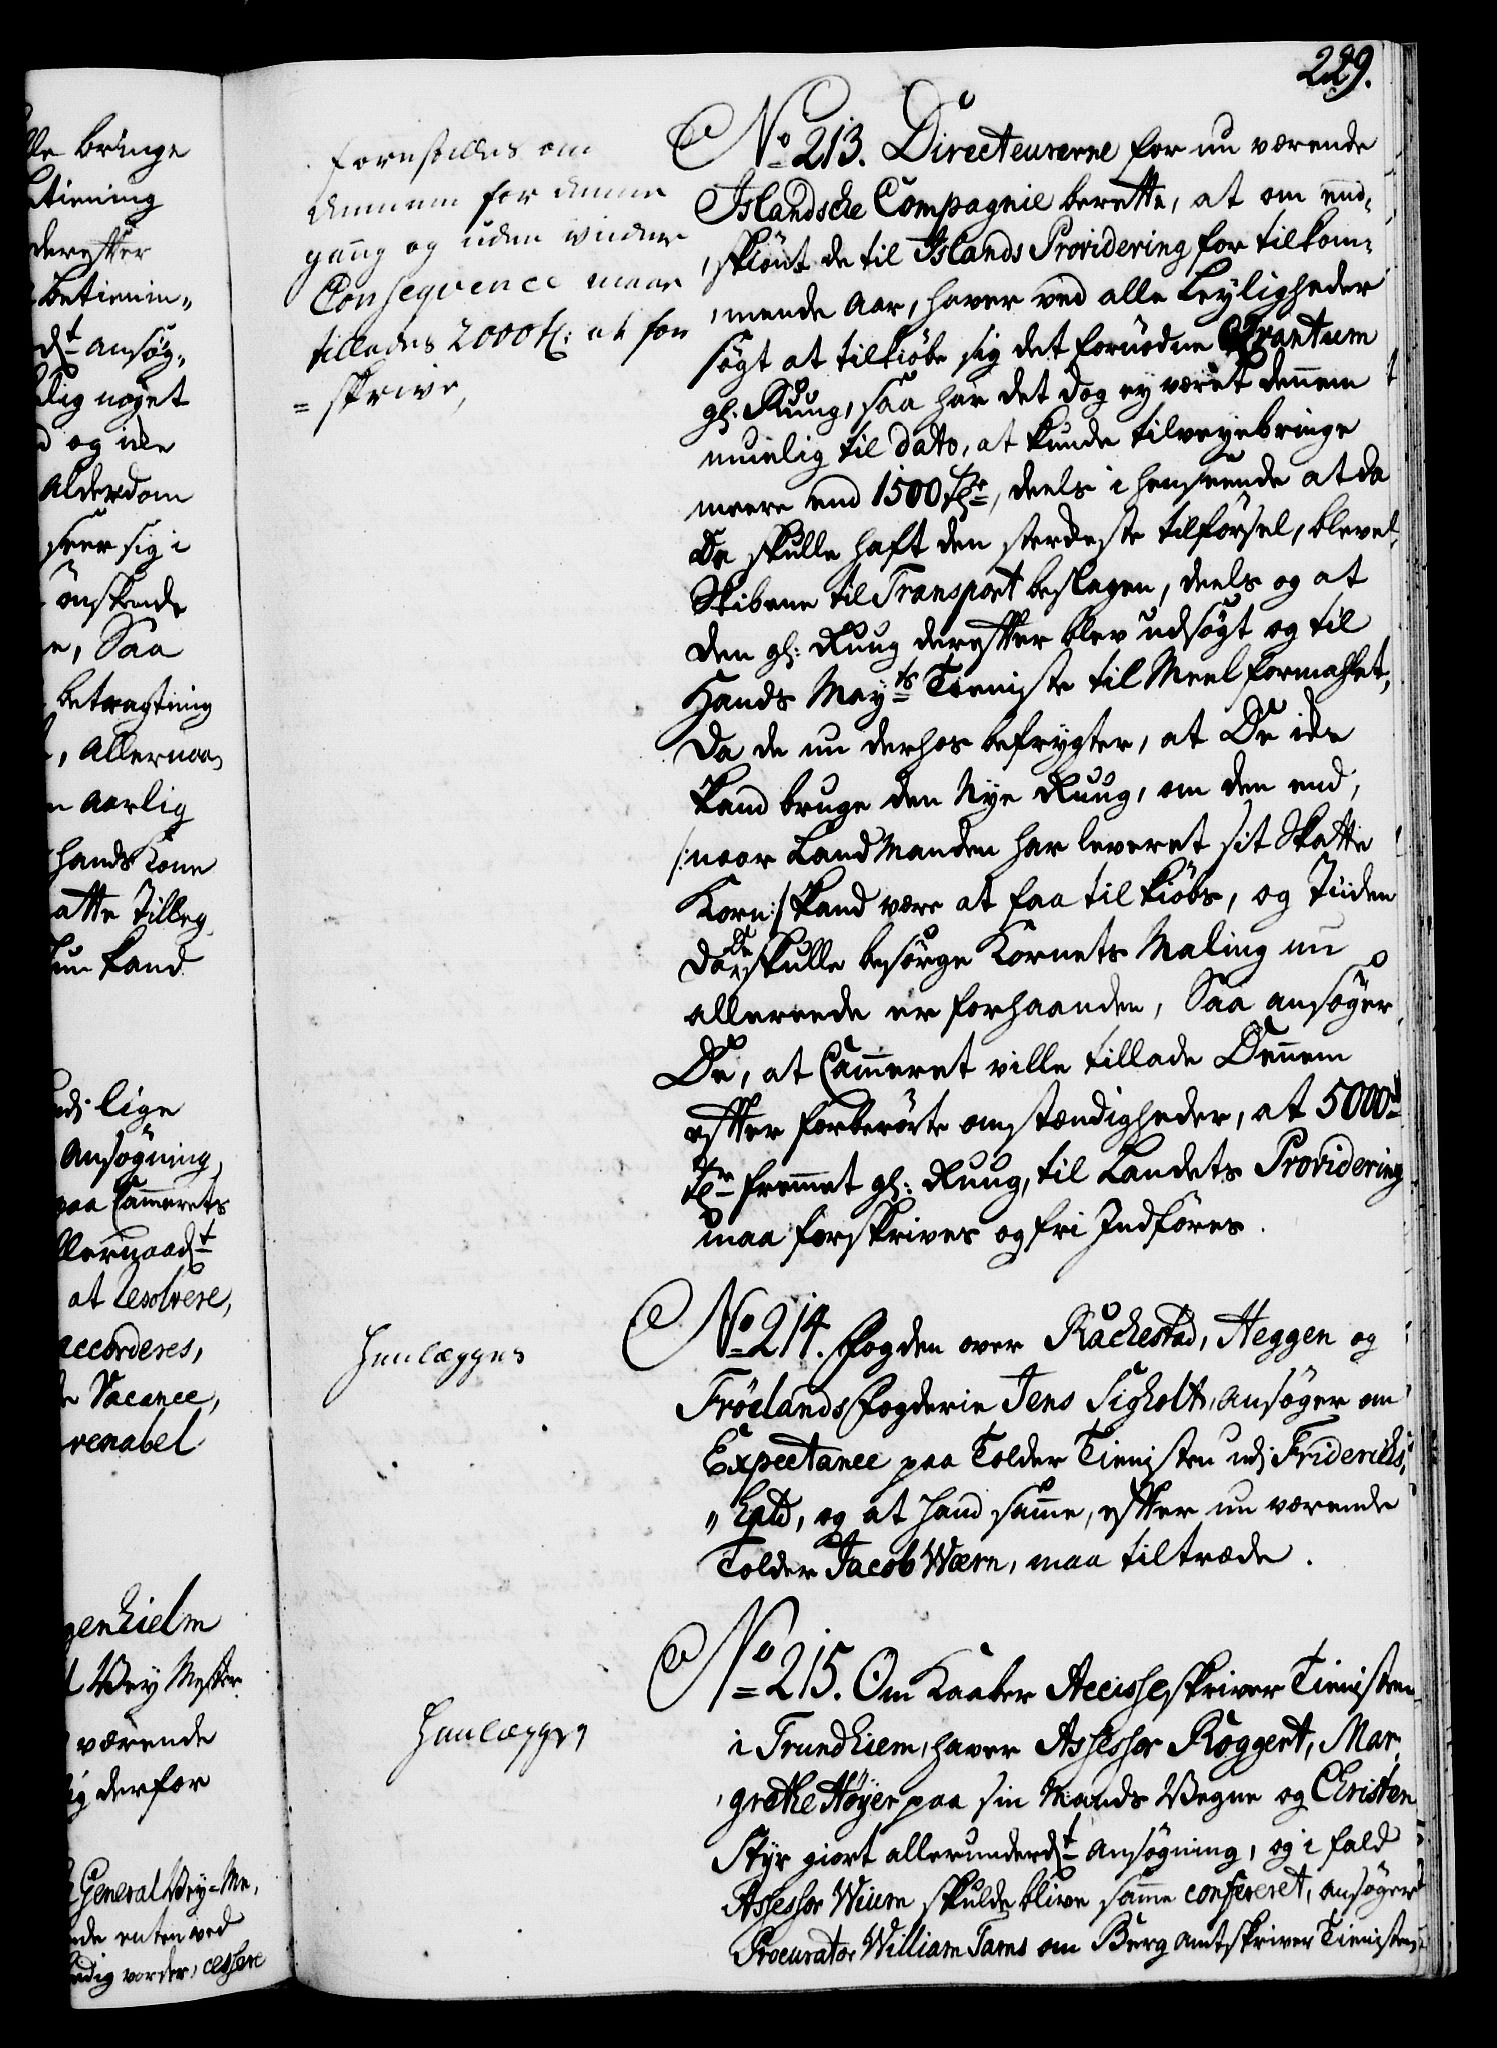 229.
lle bringe
tiening
derefter
betienin„
d.t ansøg„
lig noget
d og ide
Alderdom
seer sig i
ønskende
e, Saa
betragtning
, Allernaa„
n Aarlig
hands Kone
atte Tilleg
hun kand
udj lige
Ansøgning,
paa Cammerets
llernaad.t
at Resolvere,
accorderes,
de Vacance,
venabel
genhielm
Vey Mester
værende
ig derfor
General Vey-Me„
ede enten ved
ledig vorder, cessere
forestilles om
dennem for denne
gang og uden viidere
Conseqvence maae
tillades 2000 tr: at for
= skrive,
No 213. Directeurerne for nu værende
Islandsche Compagnie berette, at om end„
„skiönt de til Islands Providering for tilkom„
„mende Aar, haver ved alle Leyligheder
søgt at tilkiöbe sig det fornødne Qvantum
gl. Rung, saa har det dog ey været dennem
muelig til dato, at kunde tilveyebringe
meere end 1500 tr, deels i henseende at da
De skulle haft den sterckeste tilförsel, blevet
Skibene til Transport beslagen, deels og at
den gl: Ruug derefter blev udsögt og til
Hands May.ts Tieniste til Meel formahlet,
Da de nu derhos befrygter, at De icke
kand bruge den Nye Ruug, om den end,
/:naar Land Manden har leveret sit Skatte
Korn:/ kand være at faa til kiöbs, og Tiiden
da De skulle besörge Kornets Maling nu
allereede er forhaanden, Saa ansøger
De, at Cammeret ville tillade Dennem
efter forberörte omstændigheder, at 5000
tr fremmet gl: Ruug, til Landets Providering
maa forskrives og fri Indföres.
Henlægges
No 214. Fogden over Rachestad, Heggen og
Frölands Fogderie Jens Sigholt, ansøger om
Expectance paa Tolder Tienisten udj Friderichs„
„hald, og at hand samme, efter nu værende
Tolder Jacob Wærn, maa tiltræde.
Henlægges
No 215. Om Kaaber Accisseskriver Tienisten
i Trundhiem, haver Assessor Röggert, Mar„
„grethe Höyer paa sin Mands Vegne og Christen
Styr giort allerunderd.t Ansøgning, og i fald
Assessor Wium skulde blive samme confereret, ansøger
Procurator William Tams om Berg Amtskriver Tienisten